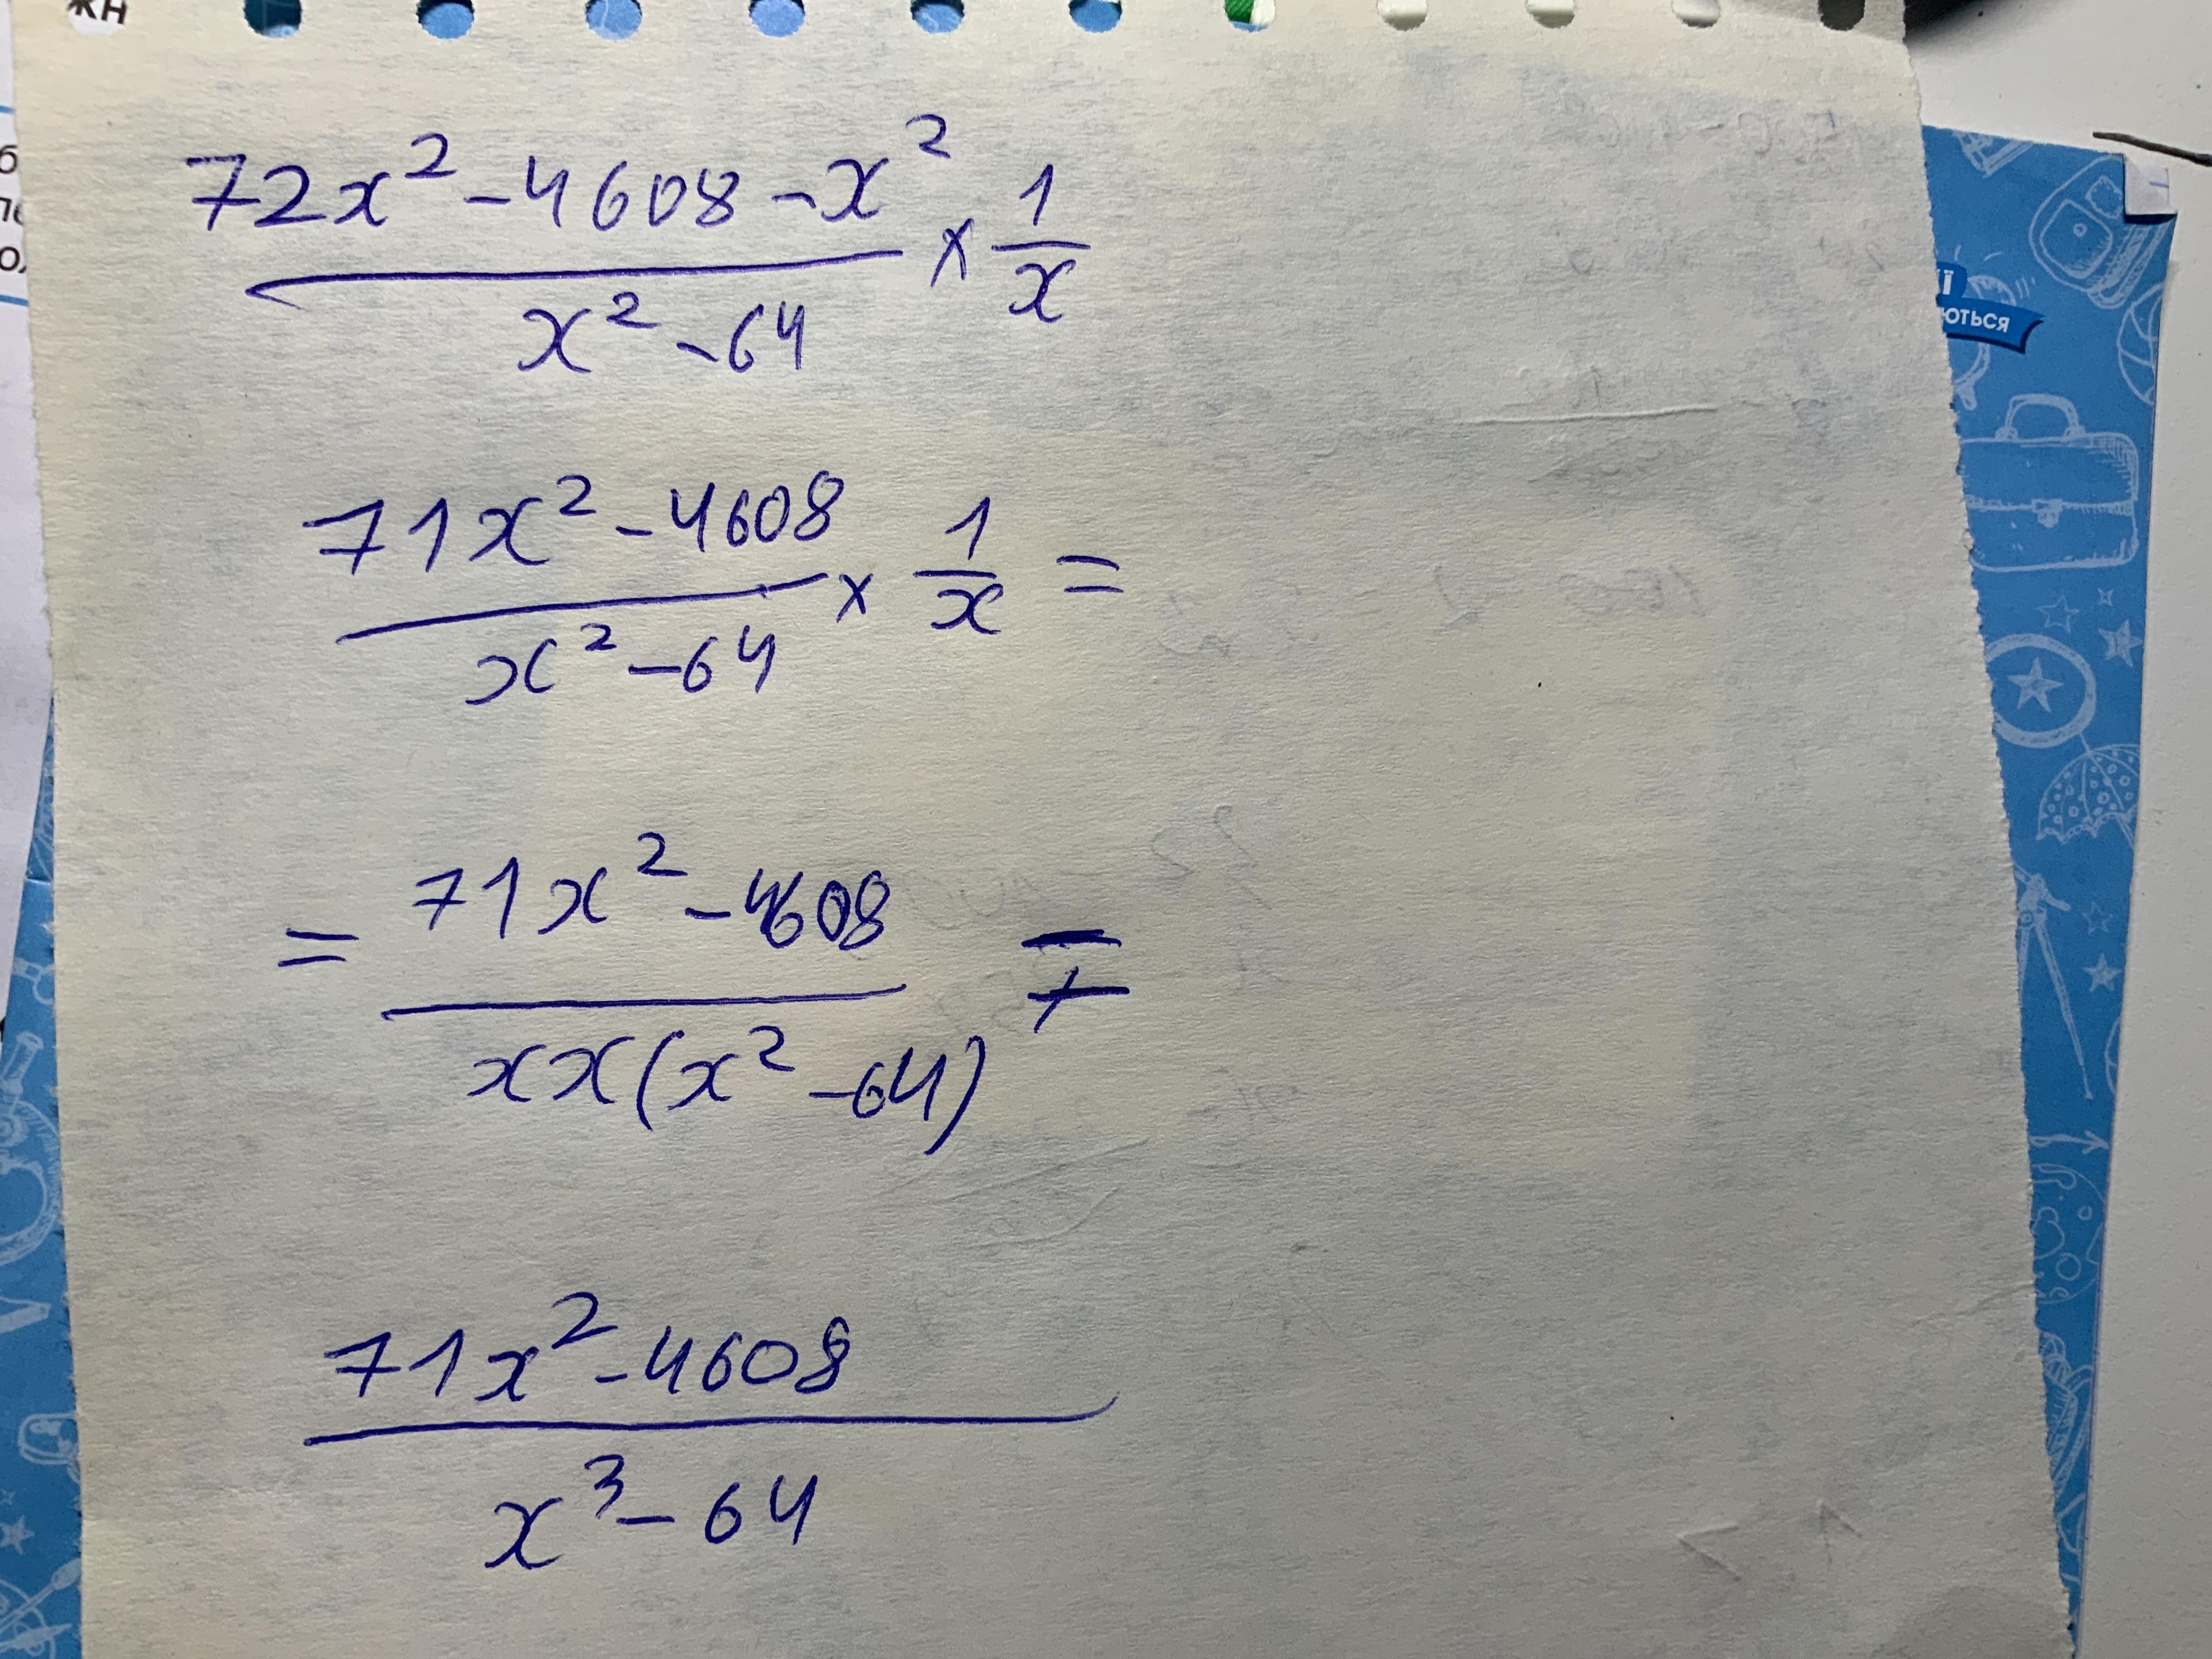 жн
72x² - 4608 - x² / x² - 64 × 1/x
71x² - 4608 / x² - 64 × 1/x =
= 71x² - 4608 / xx(x² - 64) =
71x² - 4608 / x³ - 64
ються